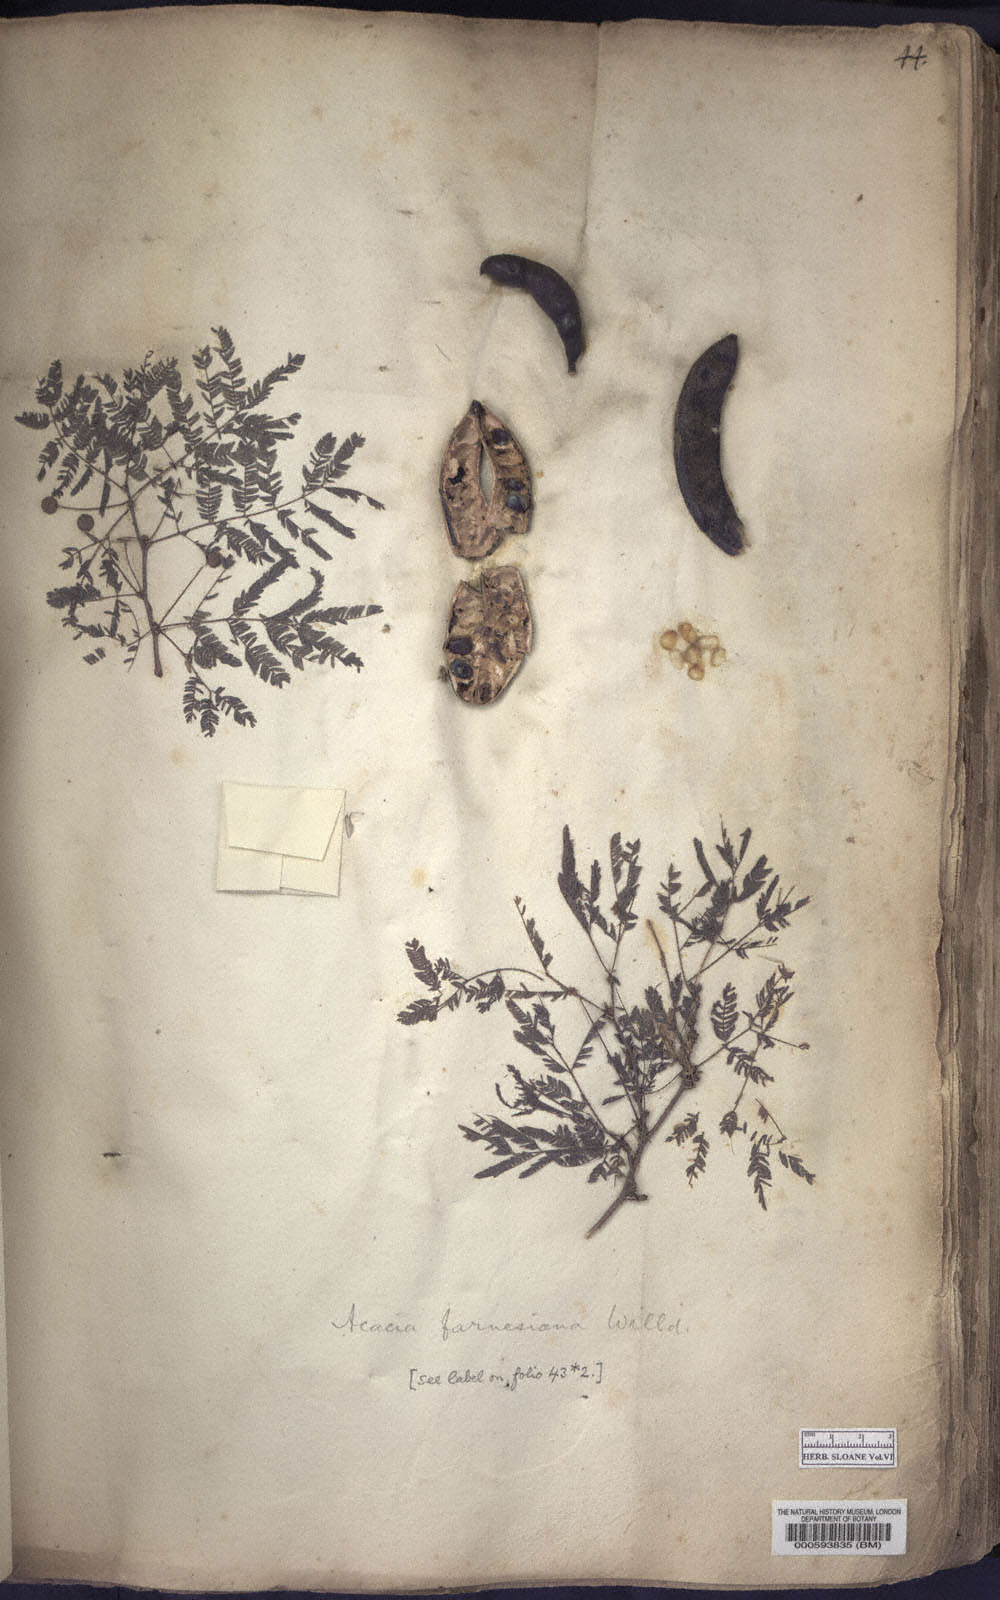 44.
Acacia farnesiana Willd.
[see label on folio 43*2.]
1 2 3
HERB. SLOANE Vol.VI
THE NATURAL HISTORY MUSEUM, LONDON
DEPARTMENT OF BOTANY
000593835 (BM)